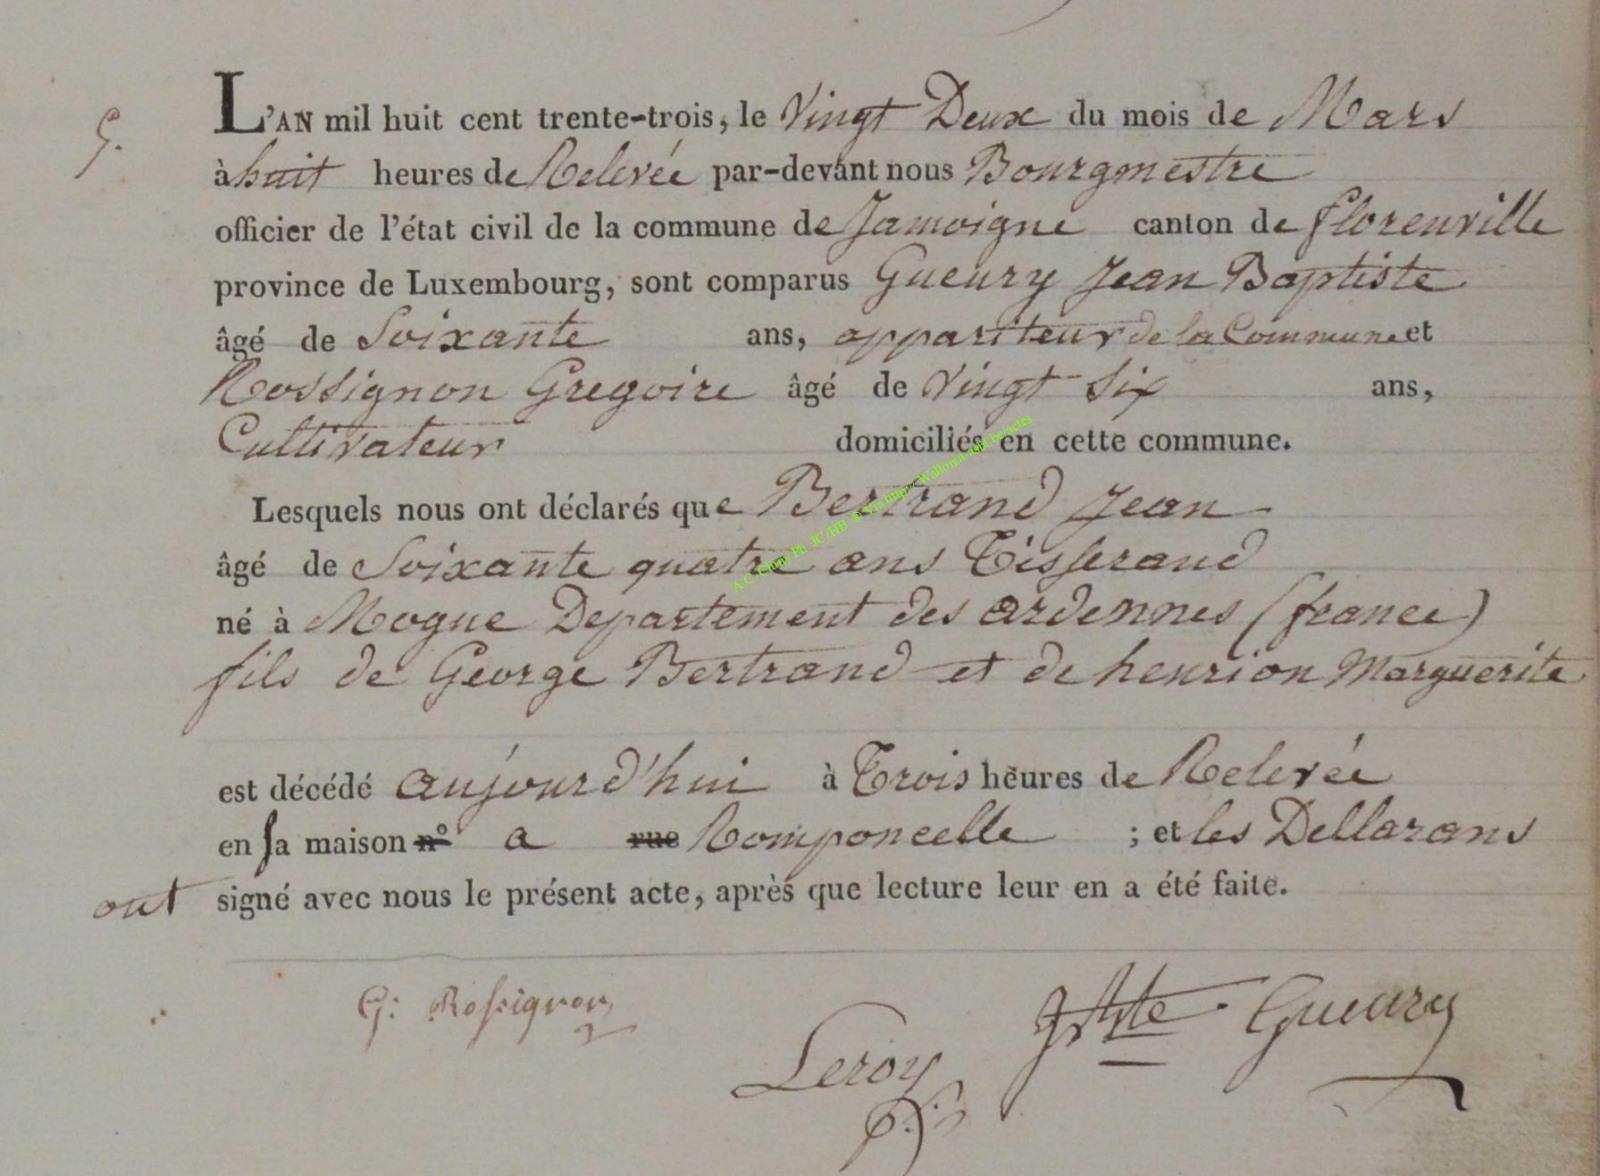 L'AN mil huit cent trente-trois, le Vingt Deux du mois de Mars
à huit heures de Relevée par-devant nous Bourgmestre
officier de l'état civil de la commune de Jamoigne canton de florenville
province de Luxembourg, sont comparus Gueury Jean Baptiste
âgé de Soixante ans, appariteur de la Commune et
Rossignon Gregoire âgé de Vingt Six ans,
Cultivateur domiciliés en cette commune.
Lesquels nous ont déclarés que Bertrand Jean
âgé de Soixante quatre ans Tisserand
né à Mogue Departement des ardennes (france)
fils de George Bertrand et de henrion Marguerite
est décédé aujourd'hui à Trois heures de Relevée
en sa maison n° a rue Romponcelle ; et les Dellarans
ont signé avec nous le présent acte, après que lecture leur en a été faite.
G: Rossignon
Leroy
Gueury